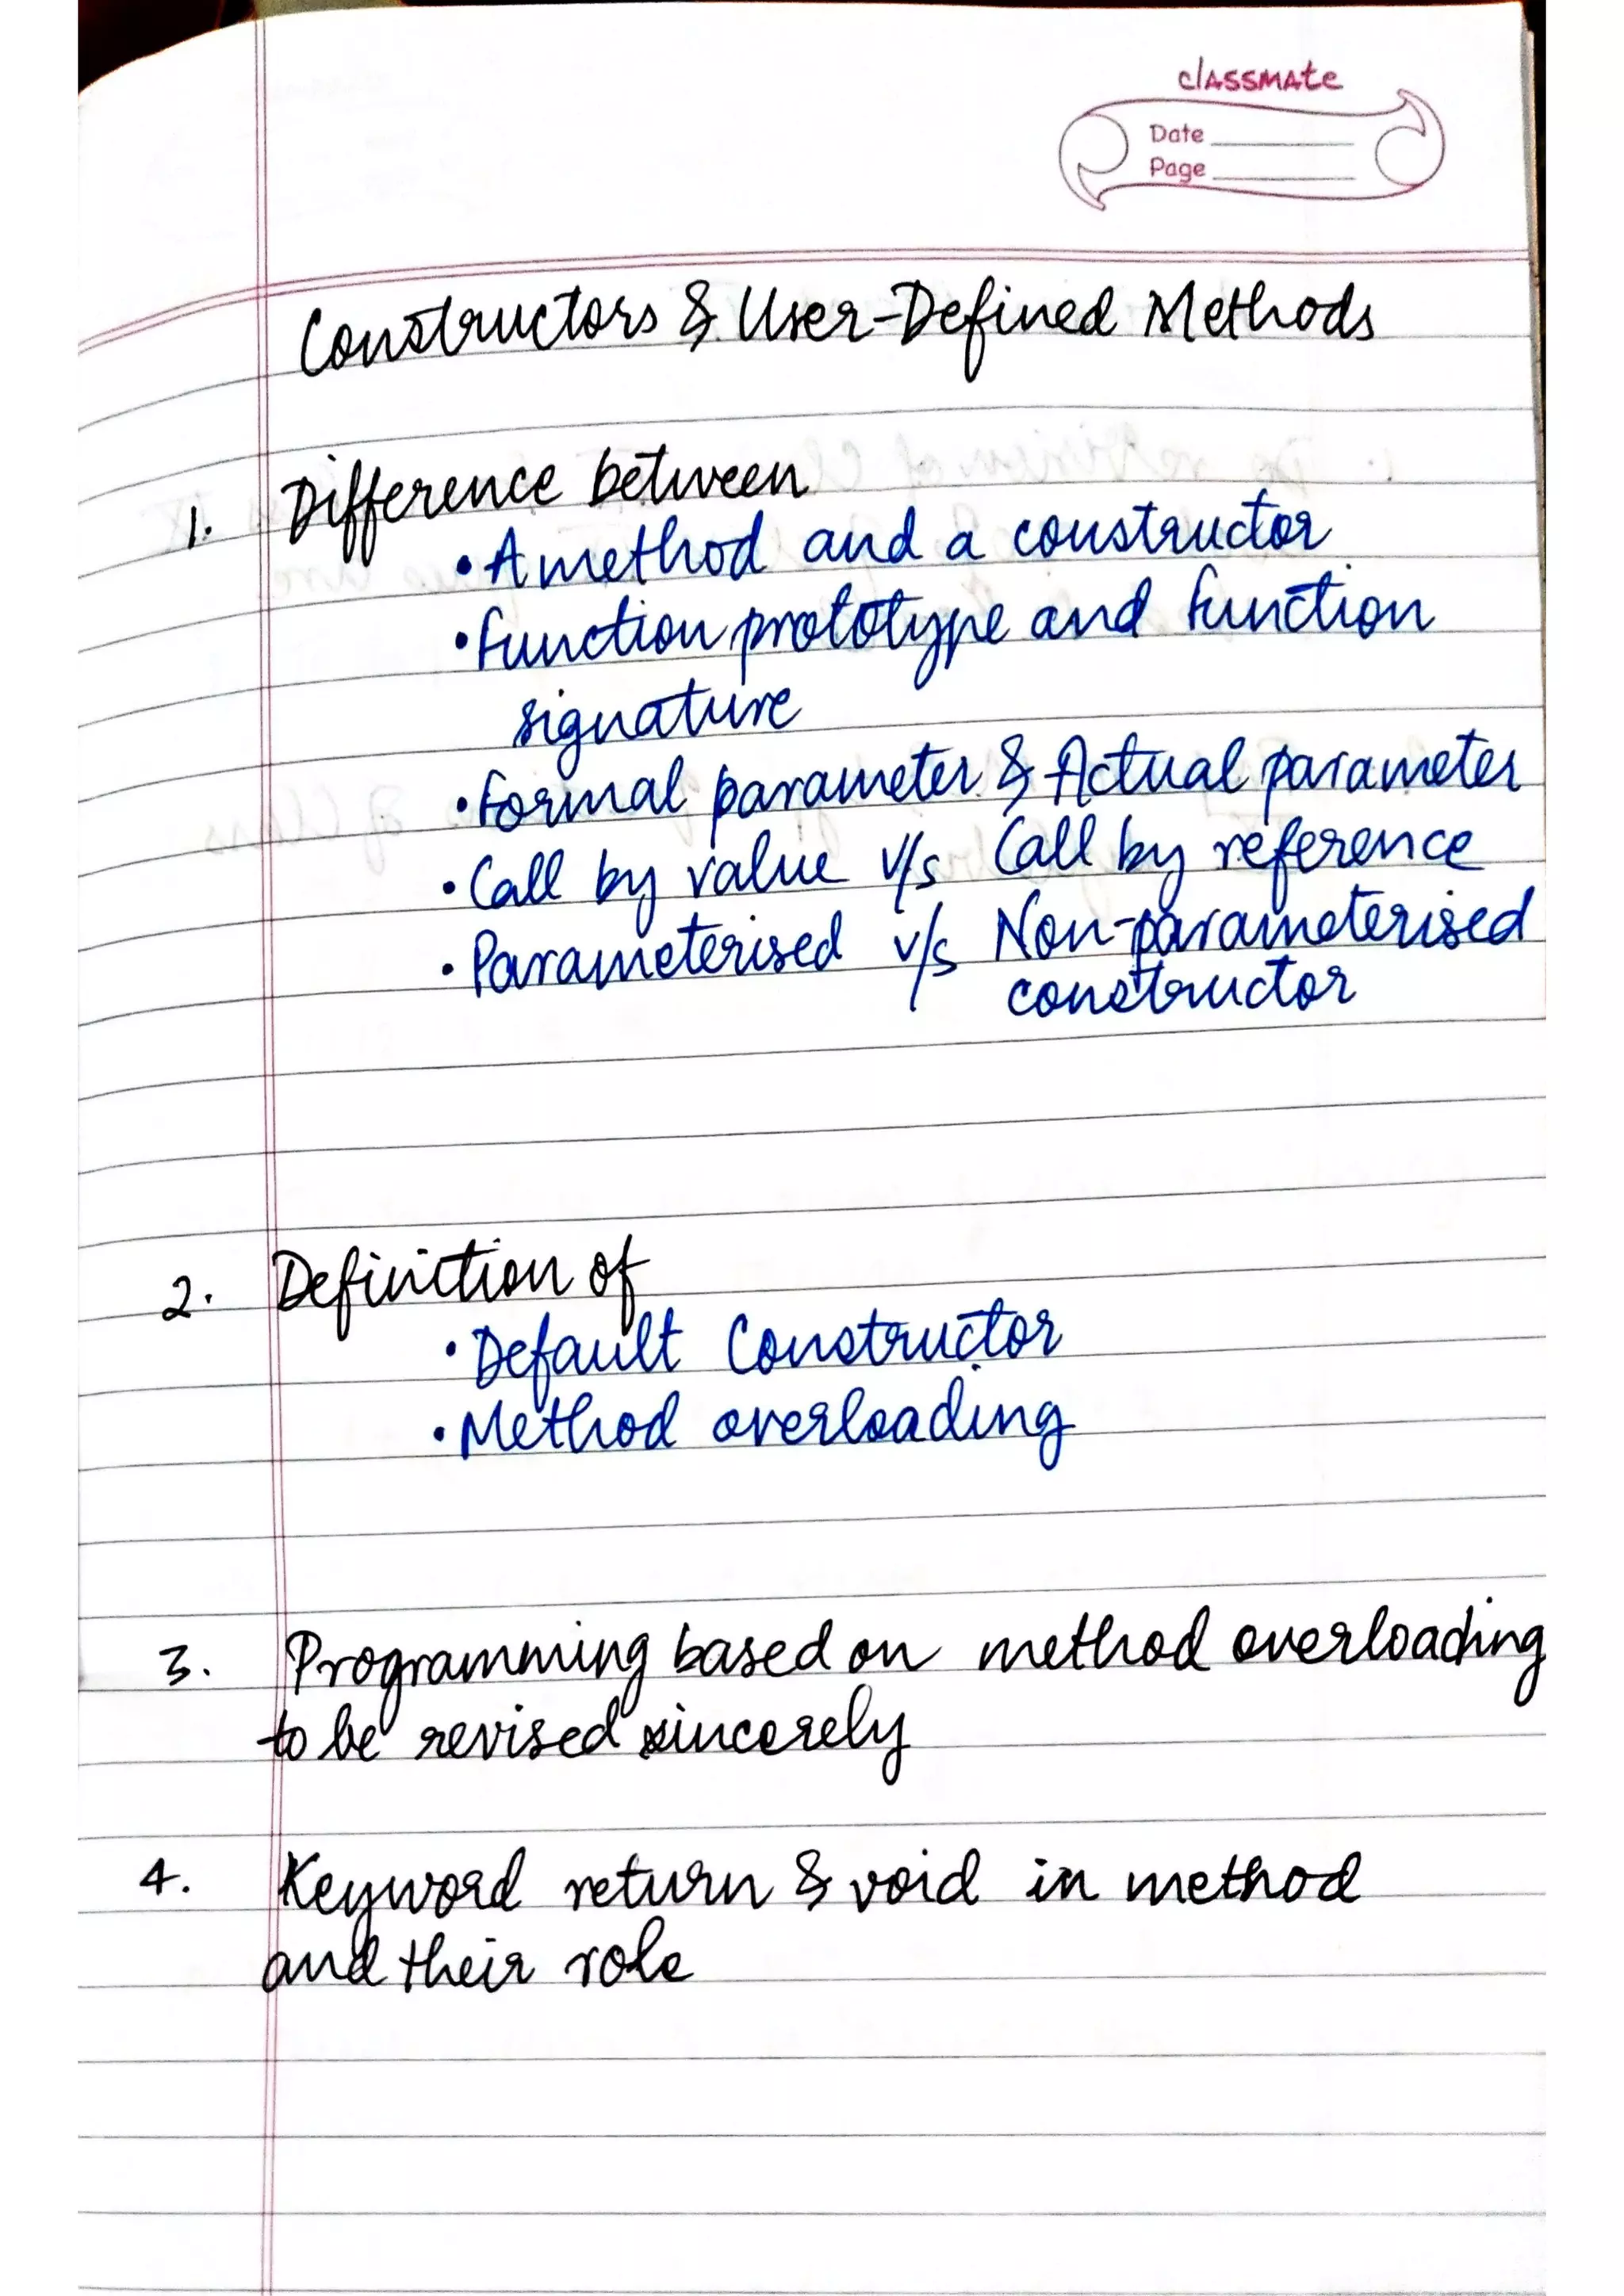 classmate
Date
Page
Constructors & User-Defined Methods
1. Difference between
• A method and a constructor
• Function prototype and function
signature
• Formal parameter & Actual parameter
• Call by value v/s Call by reference
• Parameterised v/s Non-parameterised
constructor
2. Definition of
• Default Constructor
• Method overloading
3. Programming based on method overloading
to be revised sincerely
4. Keyword return & void in method
and their role